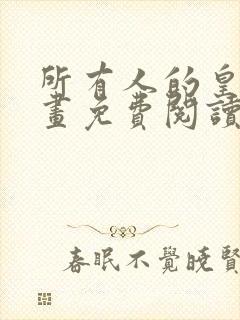 所有人的皇
畫免費閱讀
春眠不覺曉賢